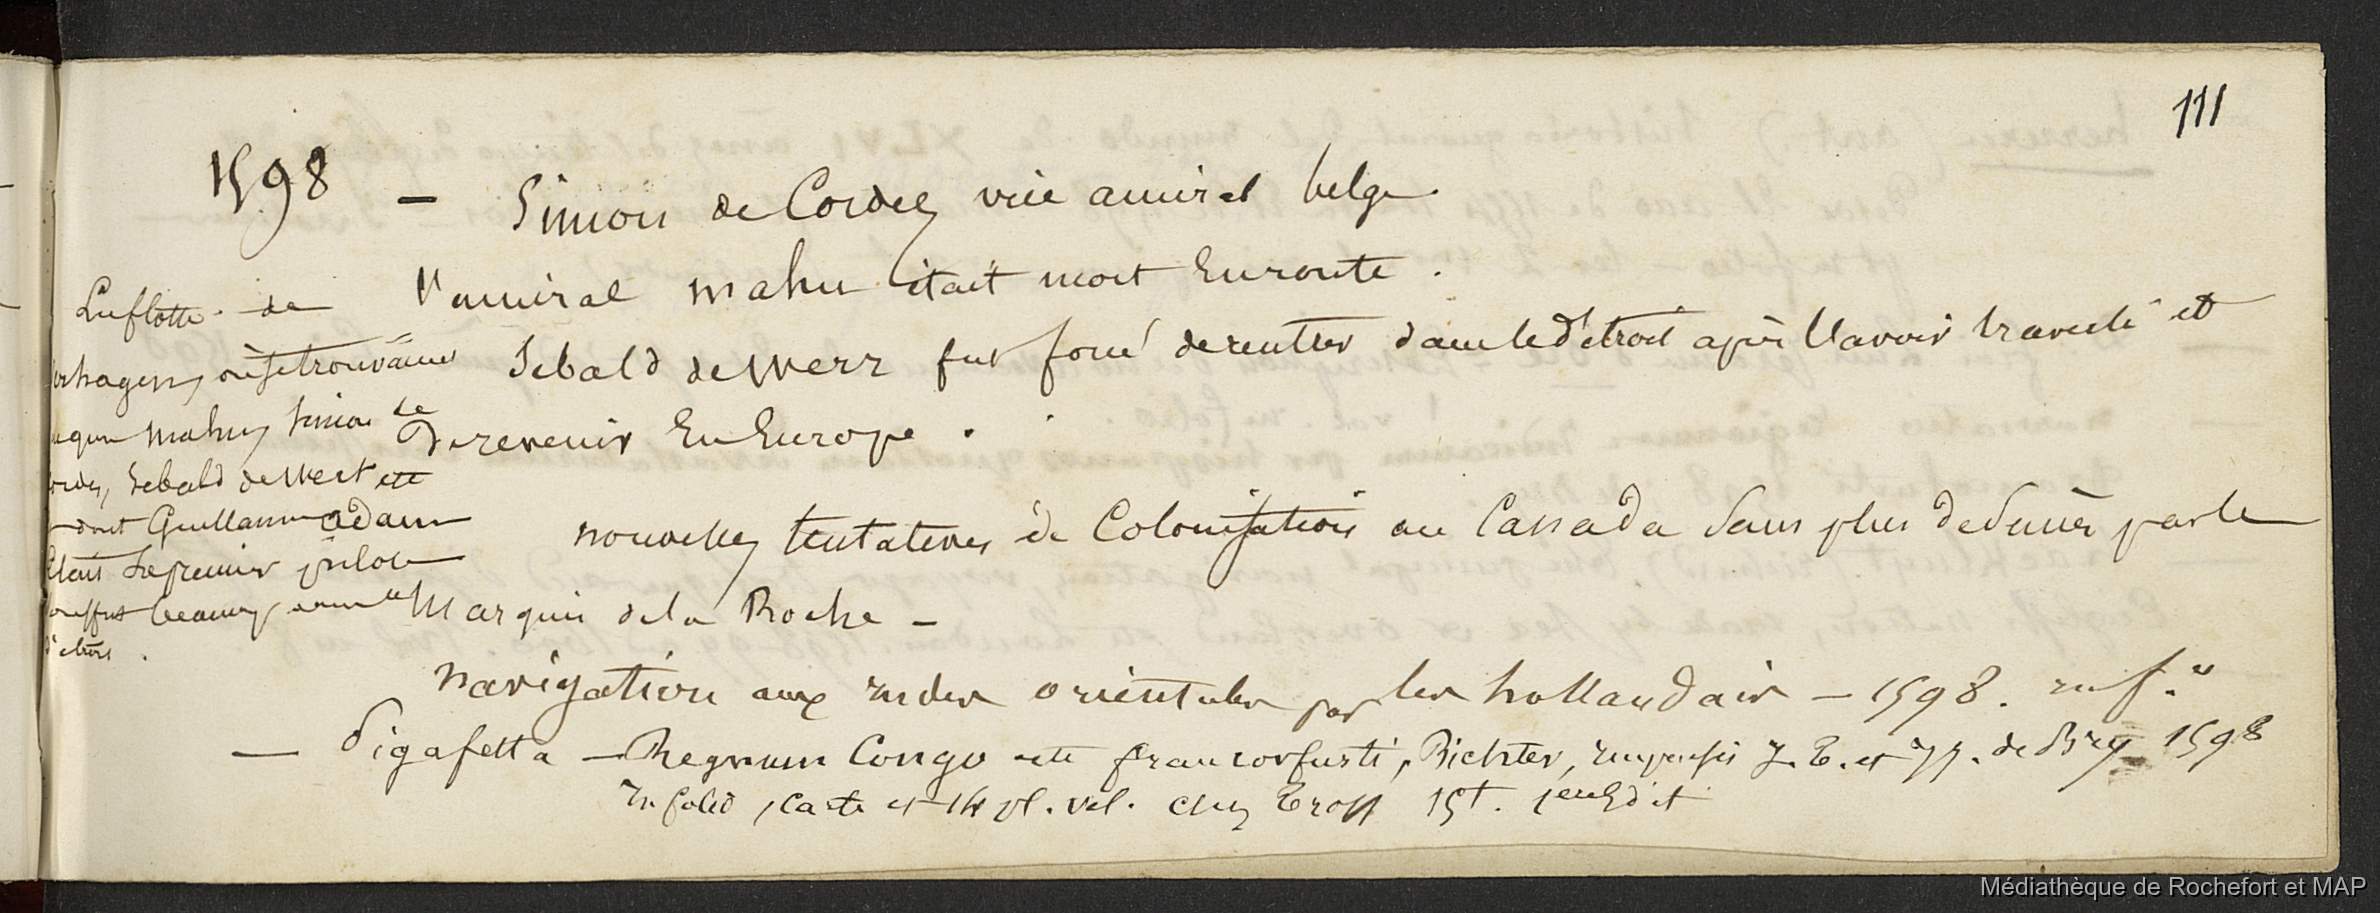 111
1598 — Simon de Cordes vice amiral belge.
l'amiral Mahu était mort en route.
Sebald de Werz fut forcé de rentrer dans le détroit après l'avoir traversé et
de revenir en Europe.
La flotte de
où se trouvaient
Mahu, Simon de
Sebald de Wert etc
dont Guillaume Adam
était le premier pilote
beaucoup dans le
détroit.
nouvelles tentatives de Colonisation au Canada sans plus de succès par le
Marquis de la Roche —
Navigation aux Indes orientales par les hollandais — 1598. in f.°
— Pigafetta — Regnum Congo etc francorfurti, Richter, impensis J. T. et J. J. de Bry 1598
in folio, carte et 14 pl. vel. chez Tross 15 f.
Médiathèque de Rochefort et MAP